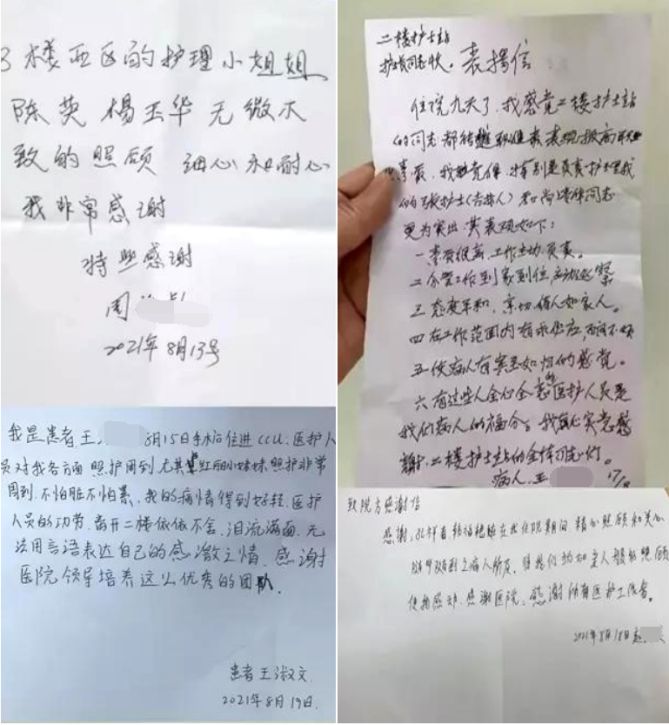 3楼西区的护理小姐姐
陈英 杨玉华 无微不
致的照顾 细心和耐心
我非常感谢
特此感谢
周
2021年8月13号
二楼护士站
护士长同志收。 表扬信
住院九天了,我感觉二楼护士站
的同志都
我 特别是负责护理我
的张护士(吉林人)和 同志
更为突出 其表现如下:
一 素质很高,工作主动、负责。
二 工作到家到位,主动
三 态度革和,亲切,待人如家人。
四 在工作范围内有求必应,
五 使病人有宾至如归的感觉。
六 有这些人全心全意的医护人员是
我们病人的福分。我 感
谢二楼护士站的全体同志们。
病人 王
我是患者王 8月15日 住进CCU,医护人
员对我各方面照护周到尤其 小妹妹照护非常
周到,不怕脏不怕累,我的病情得到好轻,医护
人员的功劳,离开二楼依依不舍,泪流满面,无
法用言语表达自己的感激之情,感谢
医院领导培养这么优秀的团队。
患者王淑文
2021年8月19日
致院方感谢信
感谢, 在我住院期间,精心照顾和关心
病人所及, 亲人般的照顾
使我感动,感谢医院,感谢所有医护工作者。
2021年8月18日赵